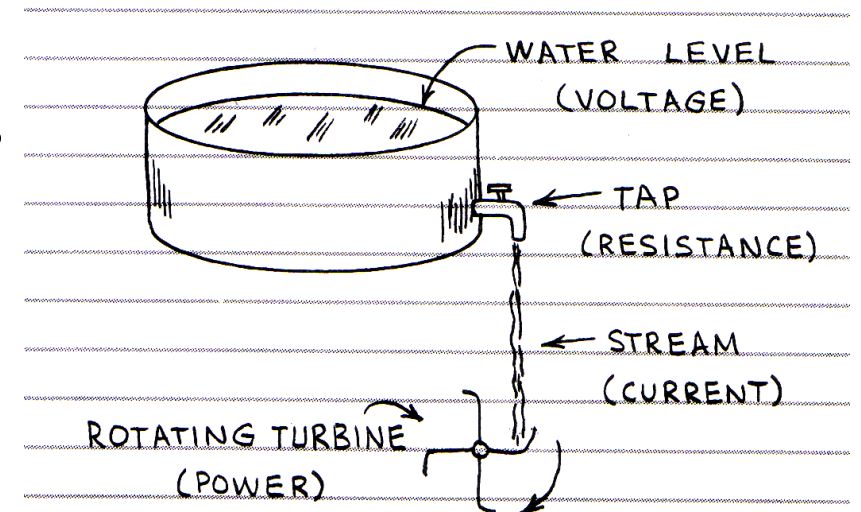 WATER LEVEL
(VOLTAGE)
TAP
(RESISTANCE)
STREAM
(CURRENT)
ROTATING TURBINE
(POWER)